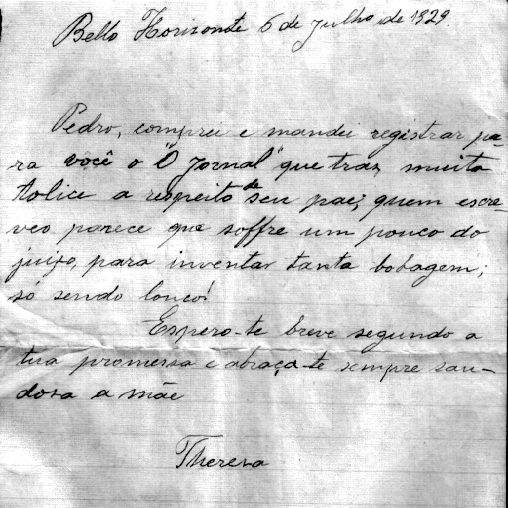 Bello Horizonte 6 de Julho de 1929.
Pedro, comprei e mandei registrar pa-
ra você o "O Jornal" que traz muita
tolice a respeito de seu pae; quem escre-
veo parece que soffre um pouco do
juizo, para inventar tanta bobagem;
só sendo louco!
Espero-te breve segundo a
tua promessa e abraça-te sempre sau-
dosa a mãe
Thereza